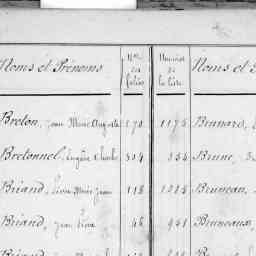 Noms et Prénoms Nos des folios Numéros de la liste Noms et P
Breton, Jean Marie Auguste 170 1175 Brunard,
Bretonnel, Eugène Charles 504 354 Brune,
Briand, Léon Marie Jean 118 1225 Bruneau,
Briand, Jean Léon 46 951 Bruneaux,
Briand